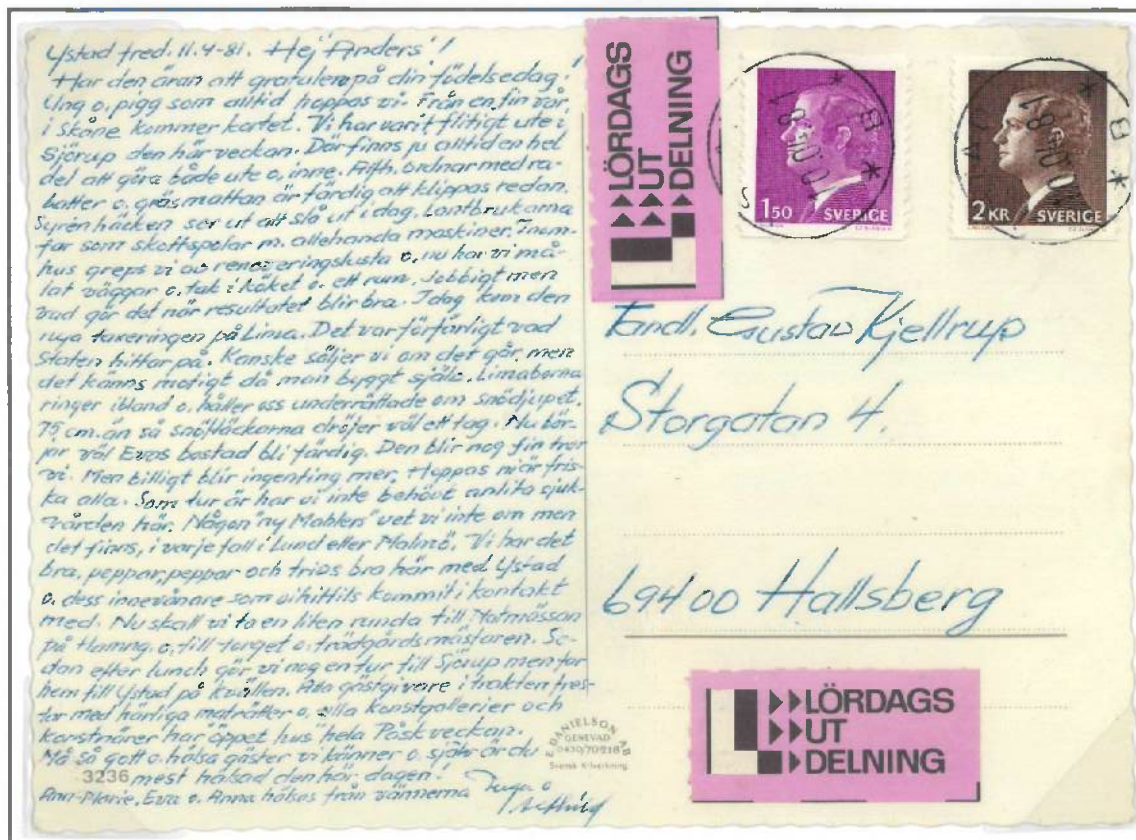 Ystad fred. 11.4-81. Hej Anders!
Har den äran att gratulera på din födelsedag!
Ung o. pigg som alltid hoppas vi. Från en fin vår,
i Skåne kommer kortet. Vi har varit flitigt ute i
Sjörup den här veckan. Där finns ju alltid en hel
del att göra både ute o. inne. Alfh. ordnar med ra-
batter o. gräsmattan är färdig att klippas redan.
Syrénhäcken ser ut att slå ut i dag. Lantbrukarna
far som skottspolar m. allehanda maskiner. Inom-
hus greps vi av renoveringslusta o. nu har vi må-
lat väggar o. tak i köket o. ett rum. Jobbigt men
vad gör det när resultatet blir bra. Idag kom den
nya taxeringen på Lima. Det var förfärligt vad
staten hittar på. Kanske säljer vi om det går, men
det känns motigt då man byggt själv. Limaborna
ringer ibland o. håller oss underrättade om snödjupet.
75 cm. än så snöfläckarna dröjer väl ett tag. Nu bör-
jar väl Evas bostad bli färdig. Den blir nog fin tror
vi. Men billigt blir ingenting mer. Hoppas ni är fris-
ka alla. Som tur är har vi inte behövt anlita sjuk-
vården här. Någon "ny Mahlén" vet vi inte om men
det finns, i varje fall i Lund eller Malmö. Vi har det
bra, peppar, peppar och trivs bra här med Ystad
o. dess innevånare som vi hittils kommit i kontakt
med. Nu skall vi ta en liten runda till
på Hamng. o. till torget o. trädgårdsmästaren. Se-
dan efter lunch gör vi nog en tur till Sjörup men far
hem till Ystad på kvällen. Alla gästgivare i trakten fres-
tar med härliga maträtter o. alla konstgallerier och
konstnärer har öppet hus hela Påskveckan.
Må så gott o. hälsa gäster vi känner o. själv är du
mest hälsad den här dagen!
Ann-Marie, Eva o. Anna hälsas från vännerna Inga o
3236
E. DANIELSON AB
GENEVAD
0430/70218
Svensk tillverkning
LÖRDAGS
UT
DELNING
1 50 SVERIGE
2 KR SVERIGE
Tandl. Gustav Kjellrup
Storgatan 4.
694 00 Hallsberg
LÖRDAGS
UT
DELNING